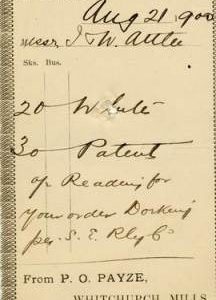 Aug 21 1900
Messrs J. W. Attlee
Sks. Bus.
20 White
30 Patent
of Reading for
your order Dorking
per S. E. Rly Co
From P. O. PAYZE,
WHITCHURCH MILLS